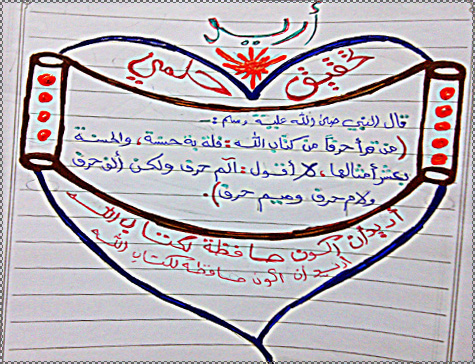 أريد
تحقيق حلمي
قال النبي صلى الله عليه وسلم :-
(من قرأ حرفاً من كتاب الله : فله به حسنة، والحسنة
بعشر أمثالها، لا أقول : الم حرف ولكن ألف حرف
ولام حرف وميم حرف).
أريد أن أكون حافظة لكتاب الله
أريد أن أكون حافظة لكتاب الله